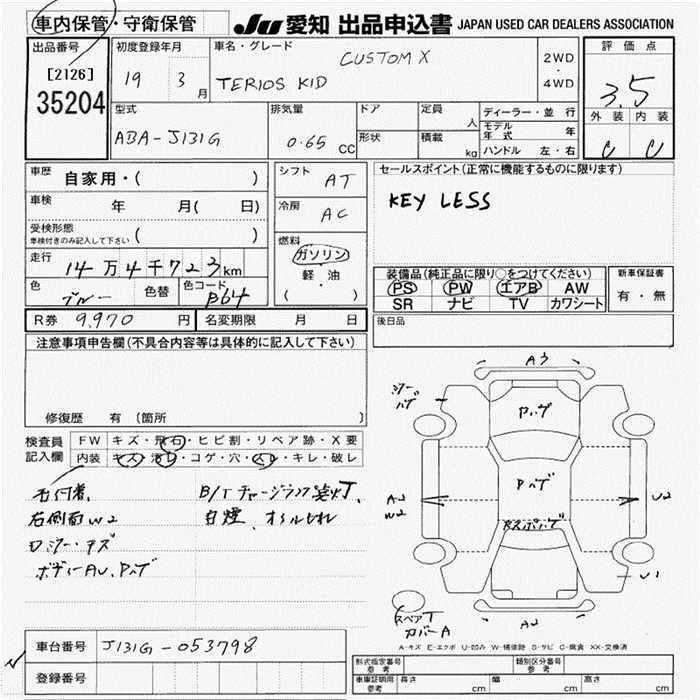 車内保管・守衛保管
JU 愛知 出品申込書 JAPAN USED CAR DEALERS ASSOCIATION
出品番号
[2126]
35204
初度登録年月
19 3 月
車名・グレード
CUSTOM X
TERIOS KID
2WD
・
4WD
評価点
3.5
外装 内装
C C
型式
ABA-J131G
排気量
0.65 CC
ドア
形状
定員
人
積載
kg
ディーラー・並 行
モデル年式 年
ハンドル 左・右
車歴
自家用・( )
車検
年 月( 日)
受検形態
車検付きのみ記入して下さい ( )
走行
14万4千723km
色
ブルー
色替
色コード
B64
シフト
AT
冷房
AC
燃料
ガソリン
軽・油
( )
セールスポイント(正常に機能するものに限ります)
KEY LESS
装備品(純正品に限り○をつけてください)
PS PW エアB AW
SR ナビ TV カワシート
新車保証書
有・無
R券 9,970 円
名変期限 月 日
後日品
注意事項申告欄(不具合内容等は具体的に記入して下さい)
修復歴 有 (箇所 )
検査員
記入欄
FW キズ・飛石・ヒビ割・リペア跡・X要
内装 キズ・汚レ・コゲ・穴・スレ・キレ・破レ
右側面W2
白煙、オイルもれ
A2
W2
U2
U1
A2
スペアT
カバーA
A-キズ E-エクボ U-凹み W-補修跡 S-サビ C-腐食 XX-交換済
車台番号 J131G-053798
登録番号
形式指定番号
参考
類別区分番号
参考
車庫証明用
参考
長さ cm
幅 cm
高さ cm